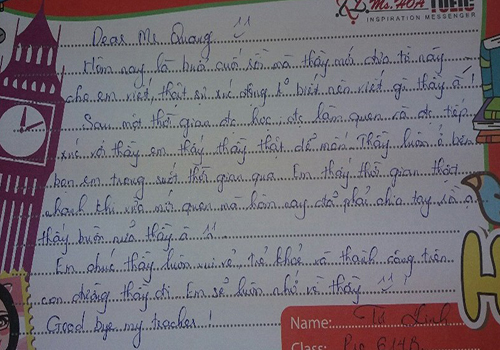 Ms. HOA TOEIC
INSPIRATION MESSENGER
Dear Mr Quang
Hôm nay là buổi cuối rồi mà thầy mới đưa tờ này
cho em viết, thật sự xúc động k biết nên viết gì thầy ạ !
Sau một thời gian đc học, đc làm quen và đc tiếp
xúc với thầy em thấy thầy thật dễ mến. Thầy luôn ở bên
bọn em trong suốt thời gian qua. Em thấy thời gian thật
nhanh khi vừa mới quen mà hôm nay đã phải chia tay rồi ạ
thấy buồn nữa thầy ạ
Em chúc thầy luôn vui vẻ, trẻ khoẻ và thành công trên
con đường thầy đi. Em sẽ luôn nhớ về thầy
Good bye my teacher !
Name: Tú Linh
Class: Pre